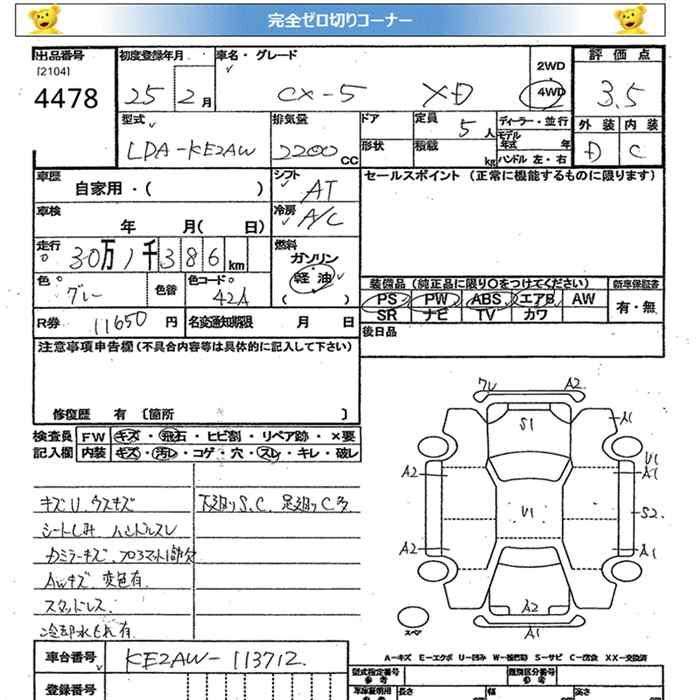 完全ゼロ切りコーナー
出品番号 初度登録年月 車名・グレード 2WD 評価点
[2104]
4478 25 2月 CX-5 XD 4WD 3.5
型式 排気量 ドア 定員 5人 ディーラー・並行 外装 内装
モデル年式 年
LDA-KE2AW 2200cc 形状 積載 kg ハンドル 左・右 D C
車歴 シフト セールスポイント (正常に機能するものに限ります)
自家用・( ) AT
車検 冷房
年 月( 日) A/C
走行 燃料
30万1千386km ガソリン
色 色替 色コード 軽油 装備品 (純正品に限り○をつけてください) 新車保証書
グレー 42A ( ) PS PW ABS エアB AW 有・無
R券 11650円 名変通知期限 月 日 SR ナビ TV カワ
注意事項申告欄(不具合内容等は具体的に記入して下さい) 後日品
修復歴 有 [箇所 ]
検査員 FW キズ・飛石・ヒビ割・リペア跡・×要
記入欄 内装 キズ・汚レ・コゲ・穴・スレ・キレ・破レ
キズU.ウスキズ 下廻りS.C.足廻りC多
シートしみ ハンドルスレ
カミラーキズ.フロアマット1部欠
AWキズ.変色有.
スタッドレス.
冷却水もれ有.
ワレ A2
S1 A1
U1
A2 A1
U1 S2
A2 A1
A2
スペア A1
A-キズ E-エクボ U-凹み W-補修跡 S-サビ C-腐食 XX-交換済
車台番号 KE2AW-113712.
型式指定番号 類別区分番号
登録番号 車庫証明用参考 長さ 幅 高さ